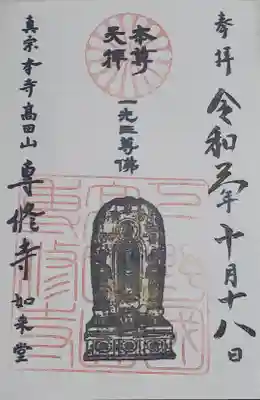 奉拝
令和元年十月十八日
本尊
天拝
一光三尊佛
真宗本寺髙田山
専修寺
如来堂